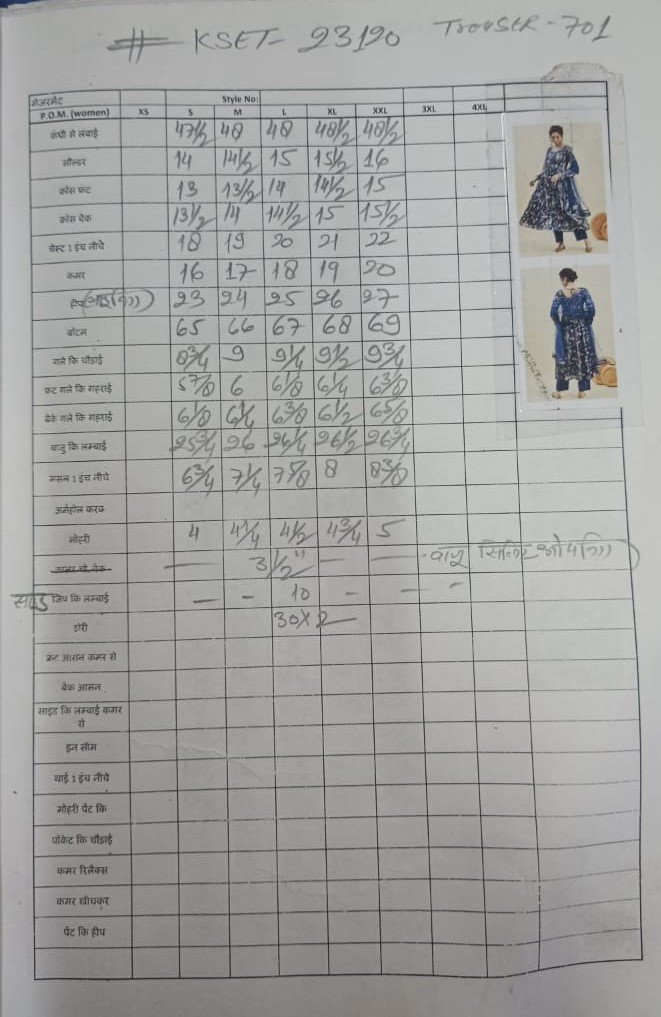 # KSET- 23190 Trouser - 701
मेजरमेंट Style No:
P.O.M. (women) XS S M L XL XXL 3XL 4XL
कंधे से लंबाई 47 1/2 48 48 48 1/2 48 1/2
सोल्डर 14 14 1/2 15 15 1/2 16
क्रोस फ्रंट 13 13 1/2 14 14 1/2 15
क्रोस बेक 13 1/2 14 14 1/2 15 15 1/2
चेस्ट 1 इंच नीचे 18 19 20 21 22
कमर 16 17 18 19 20
हीप 23 24 25 26 27
बोटम 65 66 67 68 69
गले कि चौड़ाई 8 3/4 9 9 1/4 9 1/2 9 3/4
फ्रंट गले कि गहराई 5 7/8 6 6 1/8 6 1/4 6 3/8
बेक गले कि गहराई 6 1/8 6 1/4 6 3/8 6 1/2 6 5/8
बाजु कि लम्बाई 25 3/4 26 26 1/4 26 1/2 26 3/4
मसल 1 इंच नीचे 6 3/4 7 1/4 7 5/8 8 8 3/8
अर्महोल करव
मोहरी 4 4 1/4 4 1/2 4 3/4 5
— 3 1/2" — — बाजू
साइड जिप कि लम्बाई — - 10 - — -
डोरी 30 x 2
फ्रंट आसन कमर से
बेक आसन
साइड कि लम्बाई कमर से
इन सीम
थाई 1 इंच नीचे
मोहरी पेंट कि
पॉकेट कि चौड़ाई
कमर रिलैक्स
कमर खींचकर
पेंट कि हीप